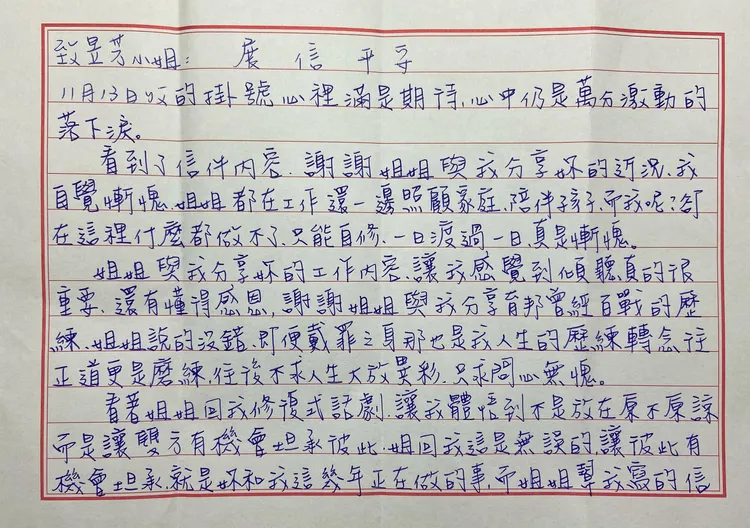 致昱芳小姐： 展 信 平安
11月13日收的掛號心裡滿是期待,心中仍是萬分激動的
落下淚。
看到了信件內容.謝謝姐姐與我分享妳的近況.我
自覺慚愧.姐姐都在工作還一邊照顧家庭.陪伴孩子.而我呢?卻
在這裡什麼都做不了.只能自修.一日渡過一日.真是慚愧。
姐姐與我分享妳的工作內容.讓我感覺到傾聽真的很
重要.還有懂得感恩.謝謝姐姐與我分享育邦曾經百戰的歷
練.姐姐說的沒錯.即便戴罪之身那也是我人生的歷練轉念往
正道更是磨練.往後不求人生大放異彩.只求問心無愧。
看著姐姐回我修復式話劇.讓我體悟到不是放在原不原諒
而是讓雙方有機會坦承彼此.姐回我這是無誤的.讓彼此有
機會坦承.就是妳和我這幾年正在做的事.而姐姐幫我寫的信